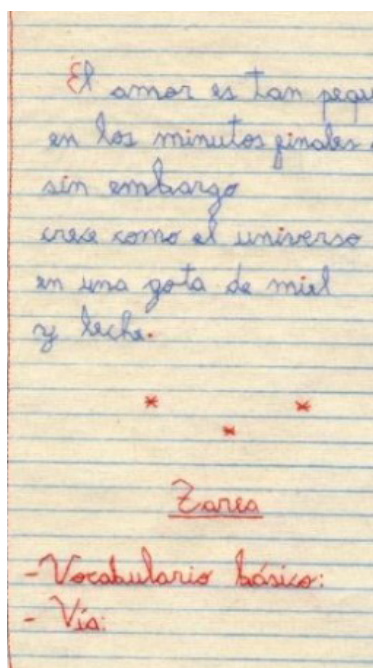 El amor es tan pequ
en los minutos finales
sin embargo
crece como el universo
en una gota de miel
y leche.
* * *
Tarea
- Vocabulario básico:
- Vía: